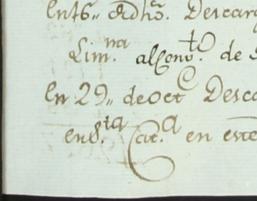 En 16,, de dho. Descar
Lim.na al Conv.to de
En 29,, de Oct.e Desc
en S.ta Cat.a en este